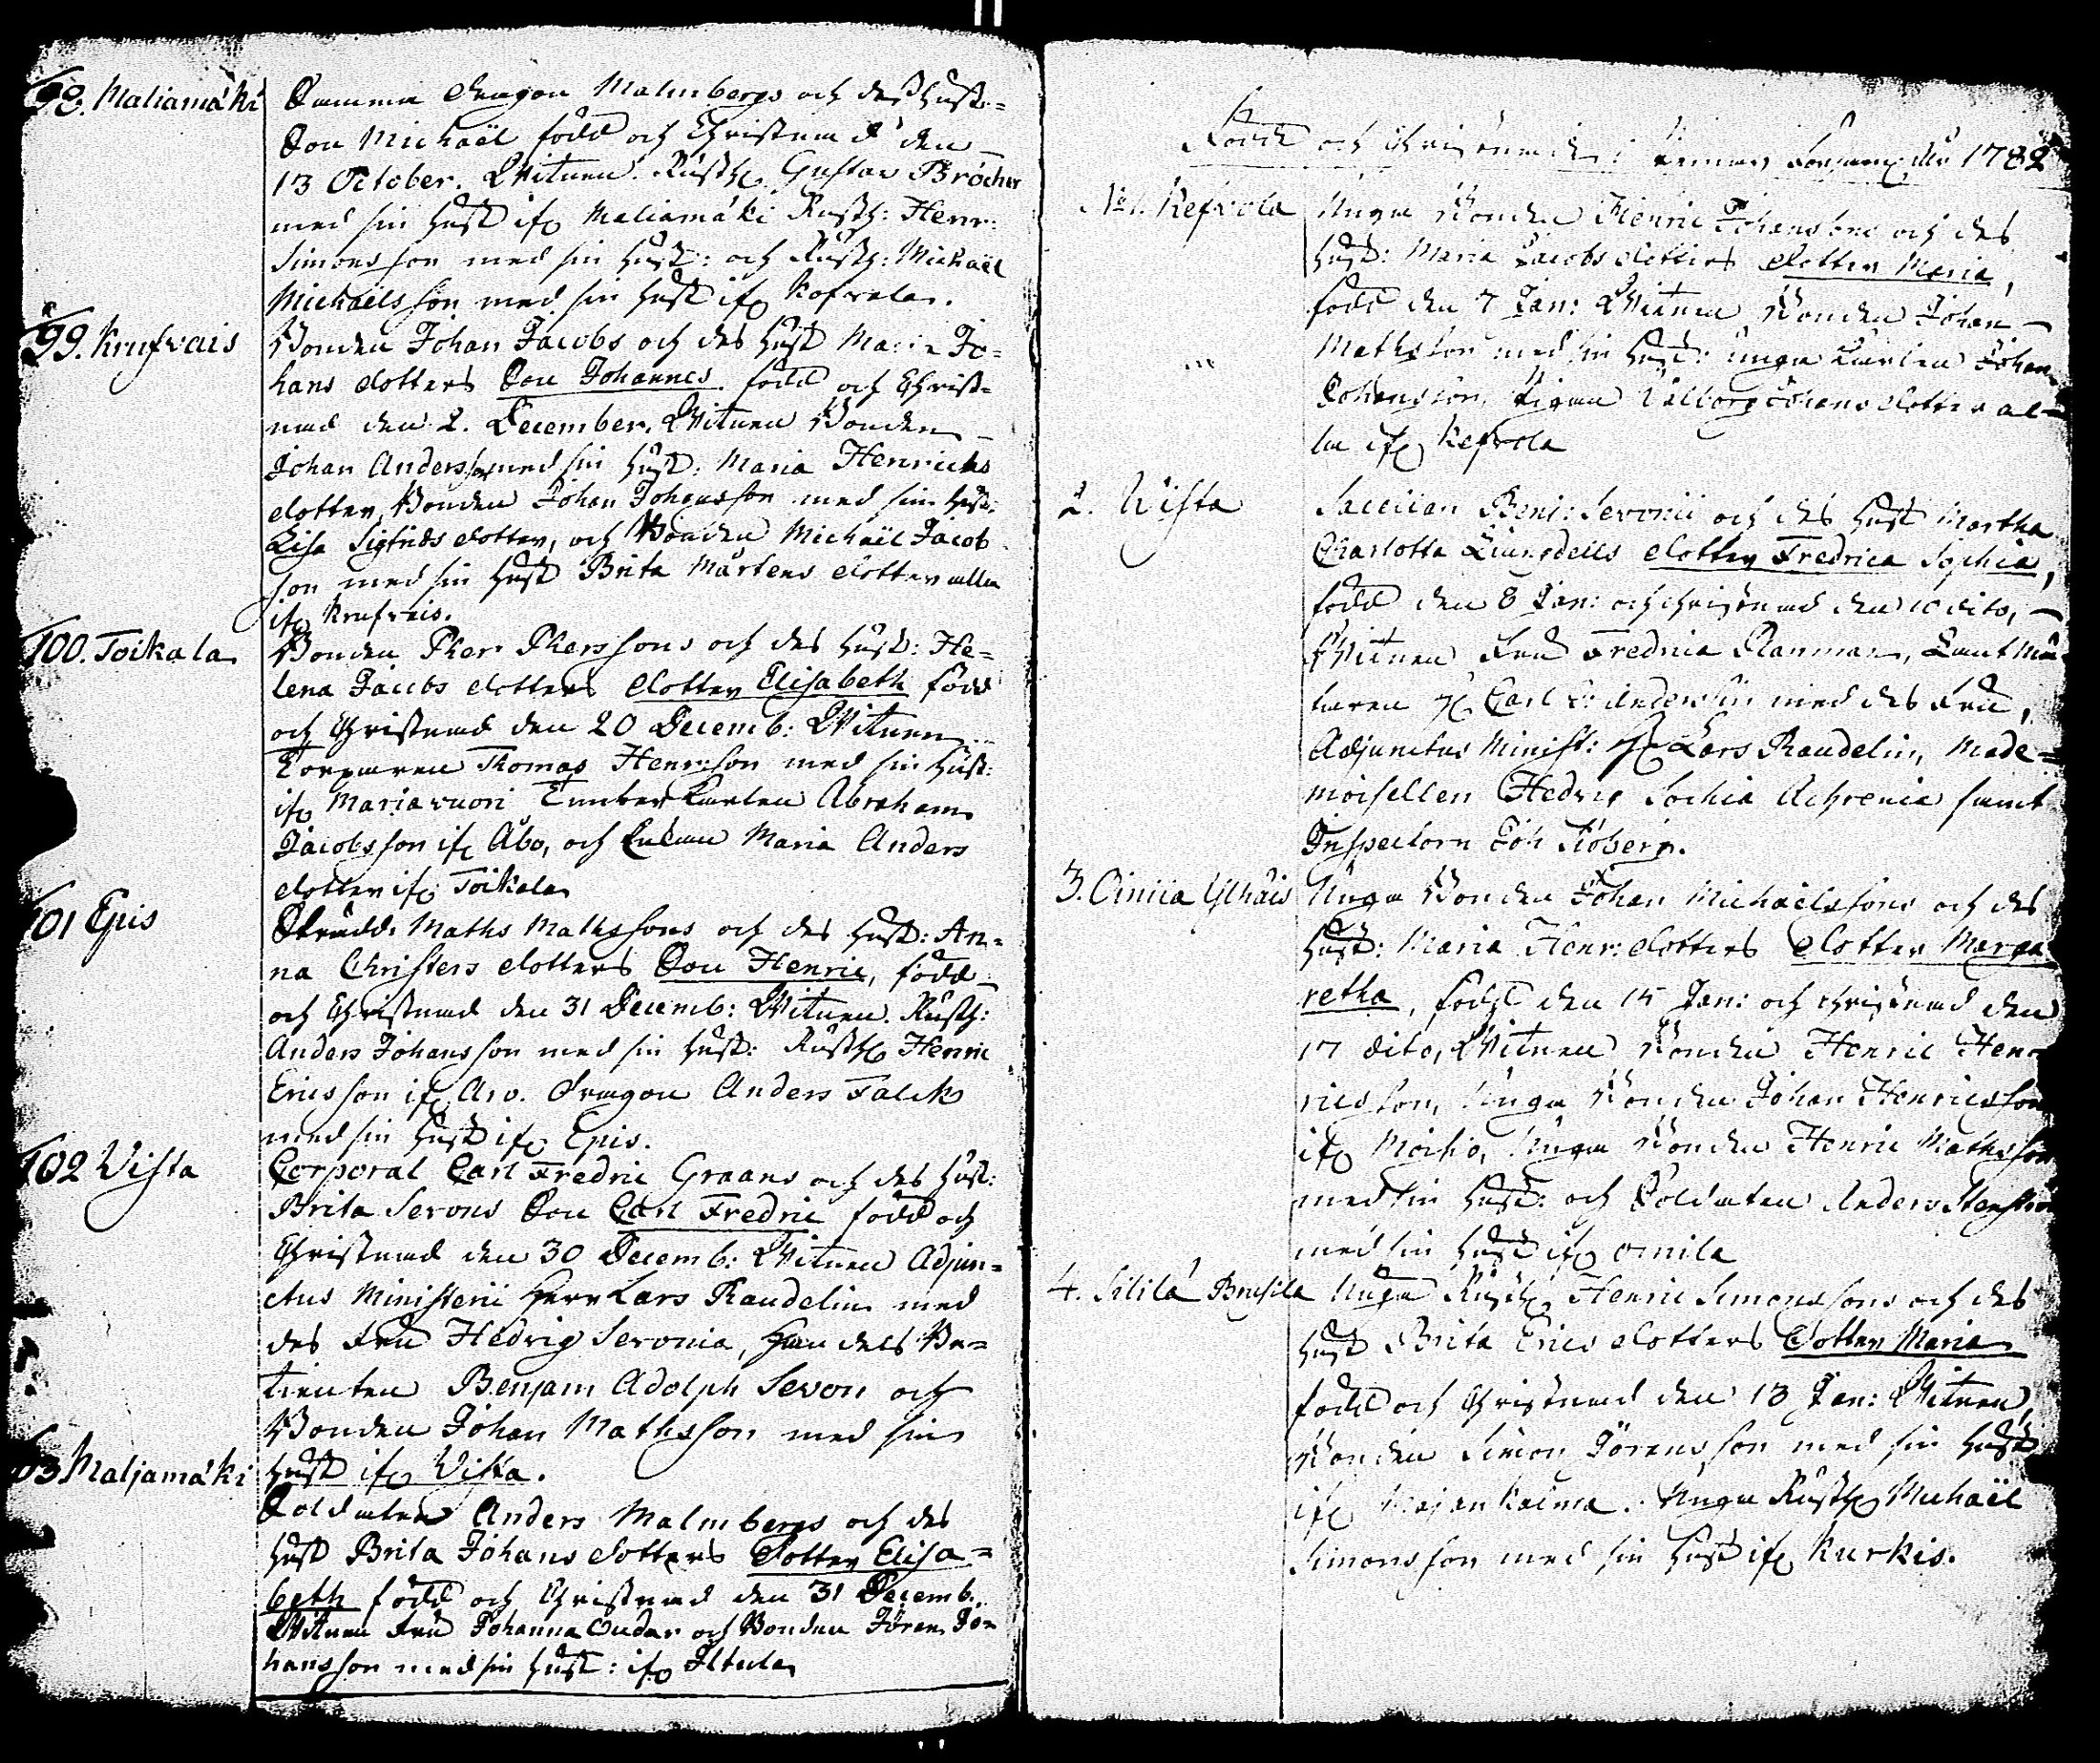 98. Maliamäki
Samma dragon Malmbergs och des hust:
Son Michaël född och Christnad den
13 October. Witnen: Rusth. Gustav Bröcker
med sin hust. ifr. Maliamäki Rusth: Henr:
Simonsson med sin hust: och Rusth: Michaël
Michaëlsson med sin hust ifr. Kofvala.
99. Krufvais
Bonden Johan Jacobs och des hust Maria Jo=
hans dotters Son Johannes född och Christ=
nad den 2. December. Witnen Bonden
Johan Andersson med sin hust: Maria Henrichs
dotter, Bonden Johan Johansson med sin hust:
Lisa Sigfrids dotter, och Bonden Michaël Jacob
son med sin hust Brita Mårtens dotter alla
ifr Krufvais.
100. Toikala
Bonden Pher Pherssons och des hust: He=
lena Jacobs dotters dotter Elisabeth född
och Christnad den 20 Decemb: Witnen
Torparen Thomas Henrsson med sin hust:
ifr Mariavuori Timberkarlen Abraham
Jacobsson ifr Åbo, och Enkan Maria Anders
dotter ifr. Toikala
101 Epis
Skrädd. Maths Mathssons och des hust: An=
na Christers dotters Son Henric, född
och Christnad den 31 Decemb: Witnen. Rusth:
Anders Johansson med sin hust: Rusth Henric
Ericsson ifr Aro. Dragon Anders Falck
med sin hust ifr Epis.
102 Vista
Corporal Carl Fredric Graans och des hust:
Brita Serons Son Carl Fredric född och
Christnad den 30 Decemb: Witnen Adjun=
ctus Ministerii Herr Lars Randelin med
des Fru Hedvig Seronia, Handels Be=
tienten Benjam Adolph Sevon och
Bonden Johan Mathsson med sin
hust ifr Vista.
103 Maljamäki
Soldaten Anders Malmbergs och des
hust Brita Johans dotters dotter Elisa=
beth född och Christnad den 31 Decemb.
Witnen Fru Johanna Gudar och Bonden Jören Jo=
hansson med sin hust: ifr Iltula
Födde och Christnade i Pemar Församl. År 1782
No 1. Kefvola
Unga Bonden Henric Johanssons och des
hust: Maria Jacobs dotters dotter Maria,
född den 7 Jan: Witnen Bonden Johan
Mathsson med sin hust: unga Karlen Johan
Johansson, Pigan Valborg Johans dotter al=
la ifr Kefvola
2. Wista
Sacellan Benj: Seronii och des hust Martha
Charlotta Ljungdells dotter Fredrica Sophia,
född den 8 Jan: och christnad den 10 dito,
Witnen Fru Fredrica Planman, Landtmä
taren H. Carl Andersin med des Fru,
Adjunctus Minist: H. Lars Randelin, Made=
moisellen Hedvig Sophia Achrenia samt
Inspectorn Joh Sjöberg.
3. Oinila Ylhäis
Unga Bonden Johan Michaëlssons och des
hust: Maria Henr: dotters dotter Marga
retha, född den 15 Jan: och christnad den
17 dito, Witnen Bonden Henric Hen
ricsson, Unga Bonden Johan Henricsson
ifr Moisio, Unga Bonden Henric Mathsson
med sin hust: och Soldaten Anders Stenström
med sin hust ifr Oinila
4. Sililä Brusila
Unga Rusth. Henric Simonssons och des
hust Brita Erics dotters dotter Maria
född och Christnad den 13 Jan: Witnen,
Bonden Simon Jörensson med sin hust
ifr Majankalma. Unga Rusth. Michaël
Simonsson med sin hust ifr Kurkis.